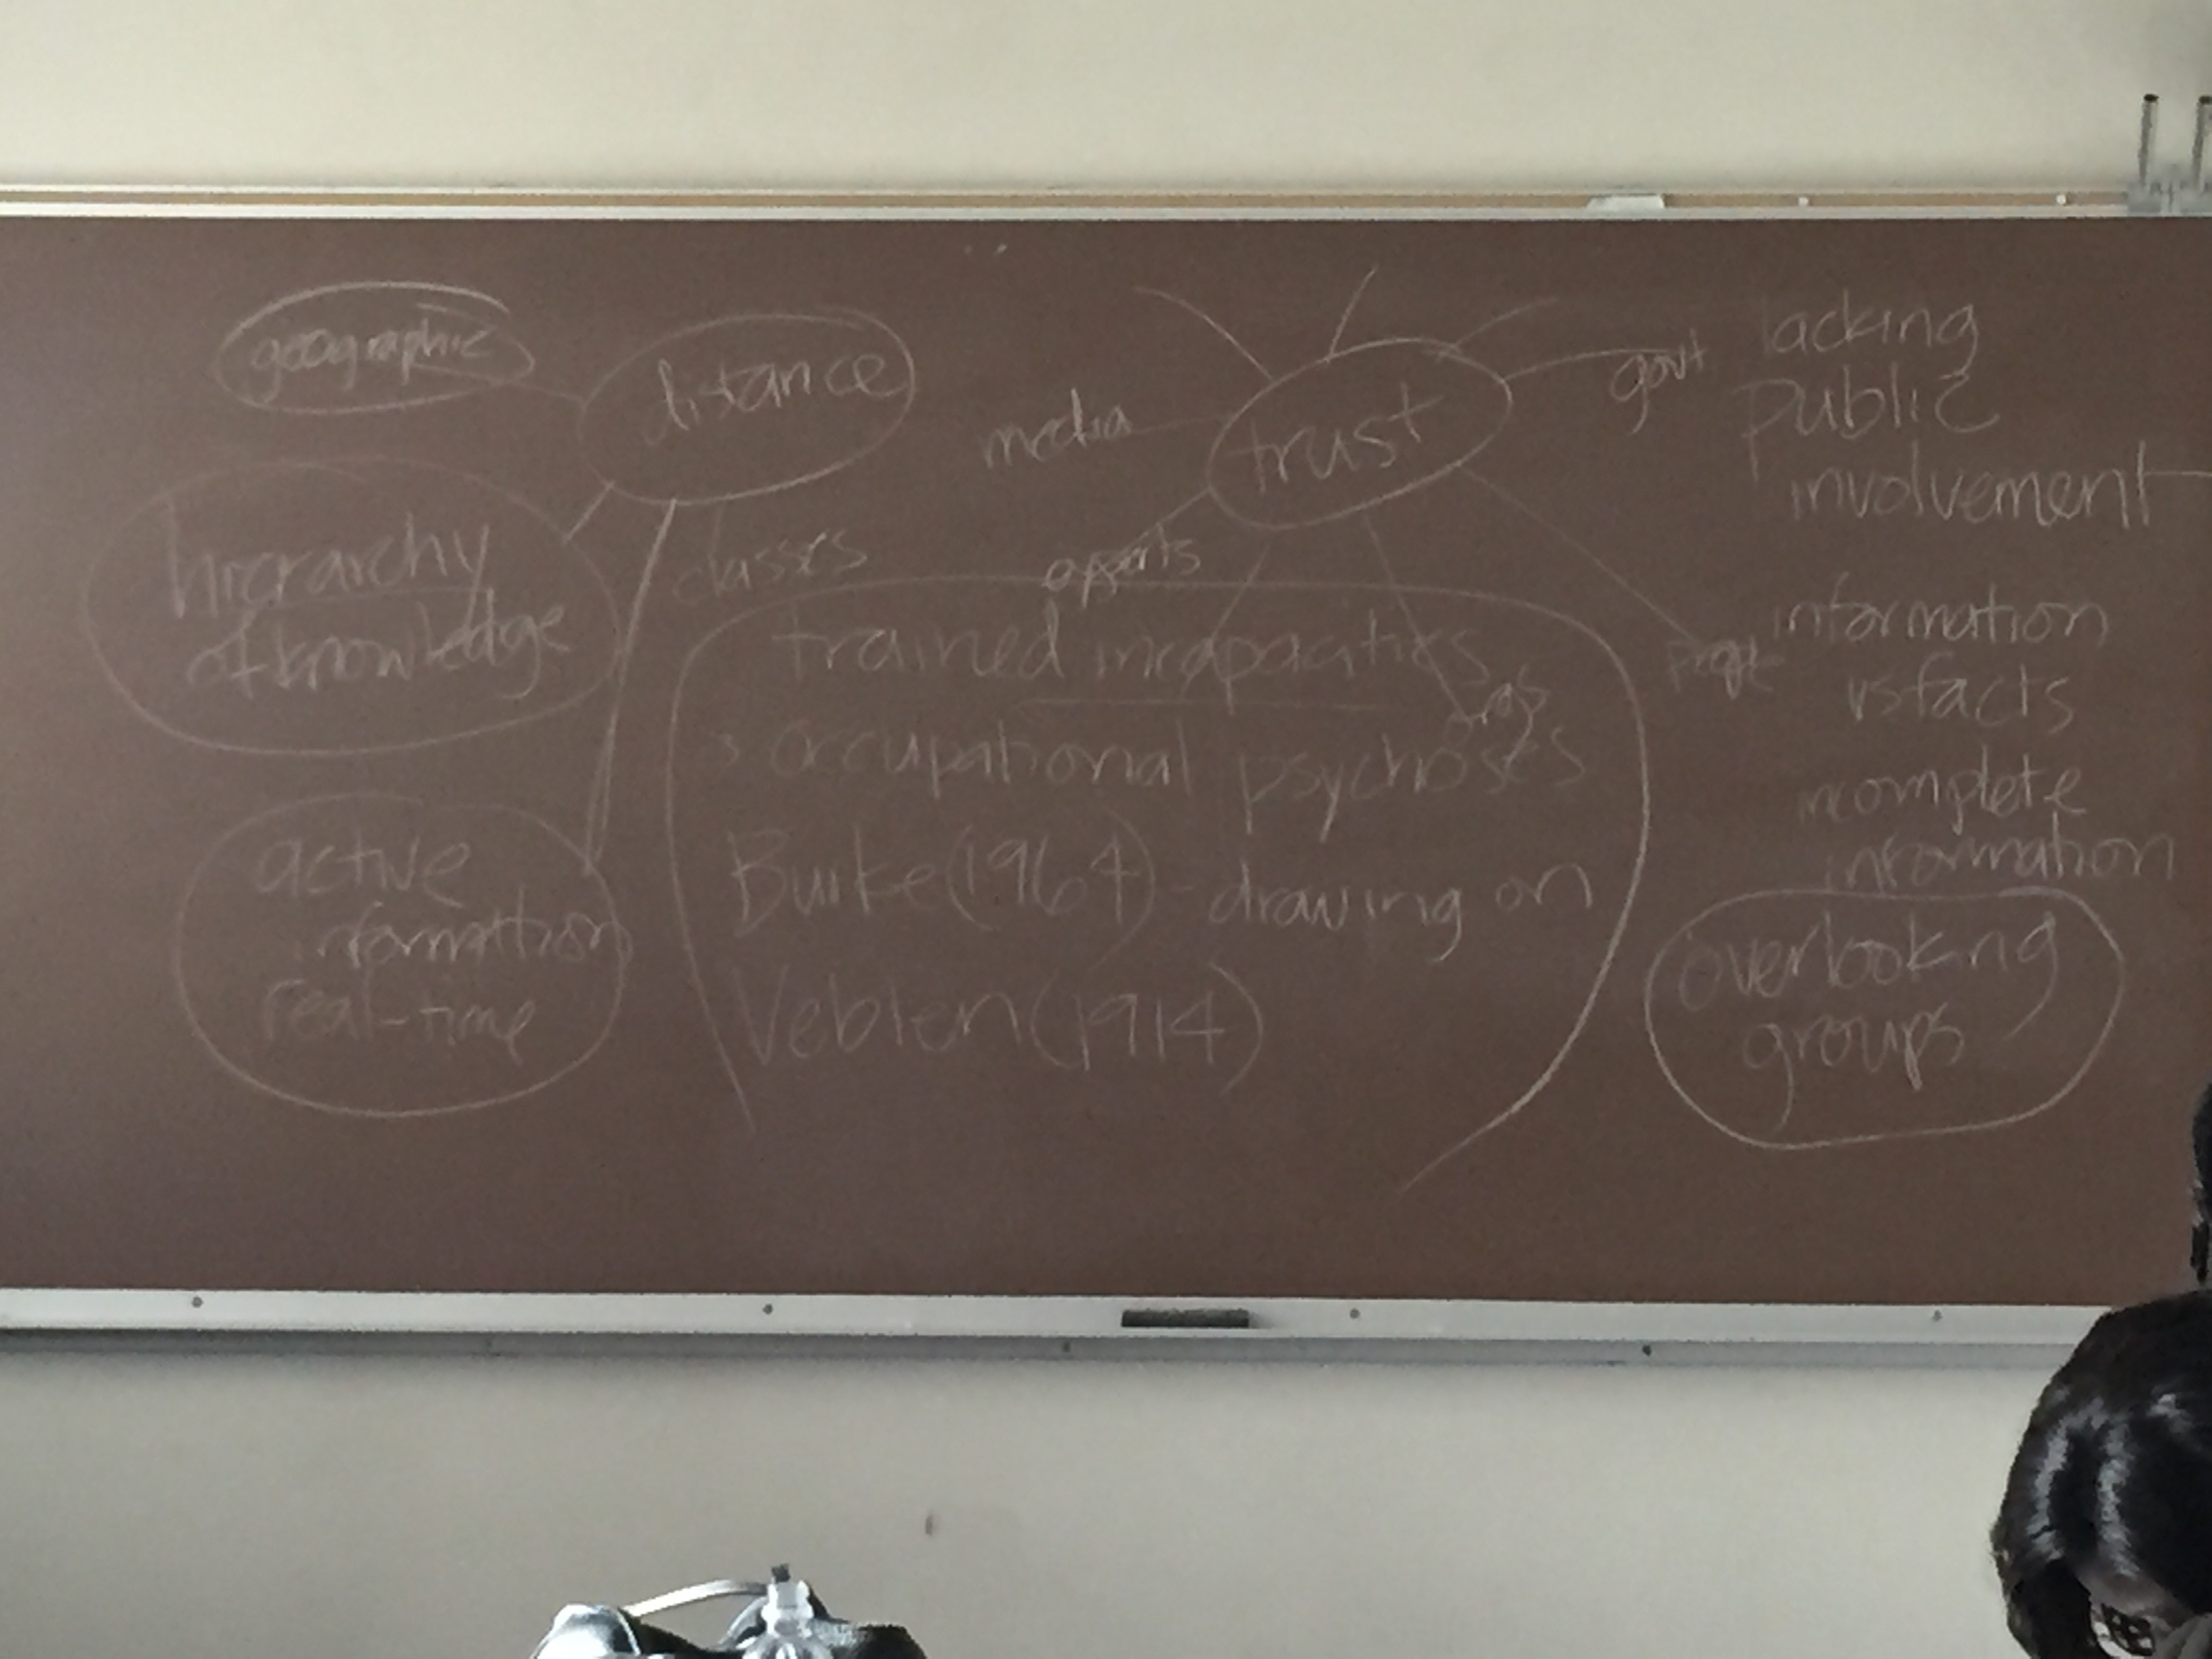 geographic
distance
hierarchy
of knowledge
active
information
real-time
classes
media
trust
govt
experts
orgs
people
trained incapacities
occupational psychoses
Burke (1964) - drawing on
Veblen (1914)
lacking
public
involvement
information
vs facts
incomplete
information
overlooking
groups